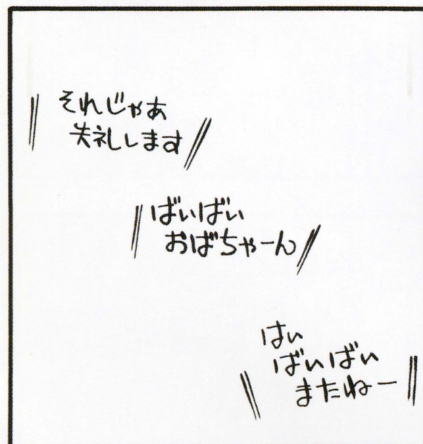 それじゃあ
失礼します
ばいばい
おばちゃーん
はい
ばいばい
またねー